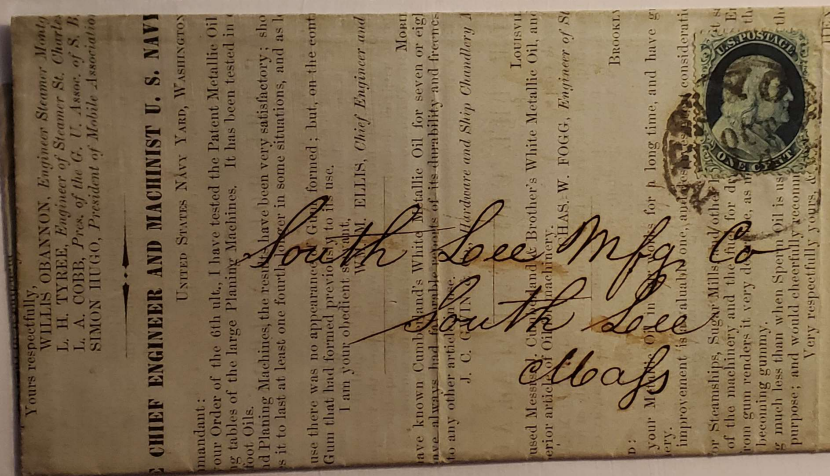 South Lee Mfg. Co
South Lee
Mass
U.S. POSTAGE
ONE CENT
Yours respectfully,
WILLIS OBANNON, Engineer Steamer
L. H. TYREE, Engineer of Steamer St. Charles
L. A. COBB, Pres. of the G. U. Assoc. of S. B.
SIMON HUGO, President of Mobile Association
CHIEF ENGINEER AND MACHINIST U. S. NAVY
UNITED STATES NAVY YARD, WASHINGTON
our Order of the 6th ult., I have tested the Patent Metallic Oil
ng tables of the large Planing Machines. It has been tested in
foot Oils.
d Planing Machines, the results have been very satisfactory; sho
s it to last at least one fourth longer in some situations, and as
use there was no appearance of Gum formed; but, on the cont
Gum that had formed previously to its use.
I am your obedient servant,
M. ELLIS, Chief Engineer and
MOBI
ave known Cumberland's White Metallic Oil for seven or eig
ave always had favorable reports of its durability and freeness
to any other article in use.
J. C. Hardware and Ship Chandlery
LOUISVIL
used Messrs. Cumberland & Brother's White Metallic Oil, and
erior article of Oil for machinery.
CHAS. W. FOGG, Engineer of St
BROOKLY
your Metallic Oil in my works for a long time, and have
improvement is valuable one, and consideration
or Steamships, Sugar Mills and other
of the machinery and the
rom gum renders it very
becoming gummy.
much less than when Sperm Oil is
purpose; and would cheerfully
Very respectfully yours,